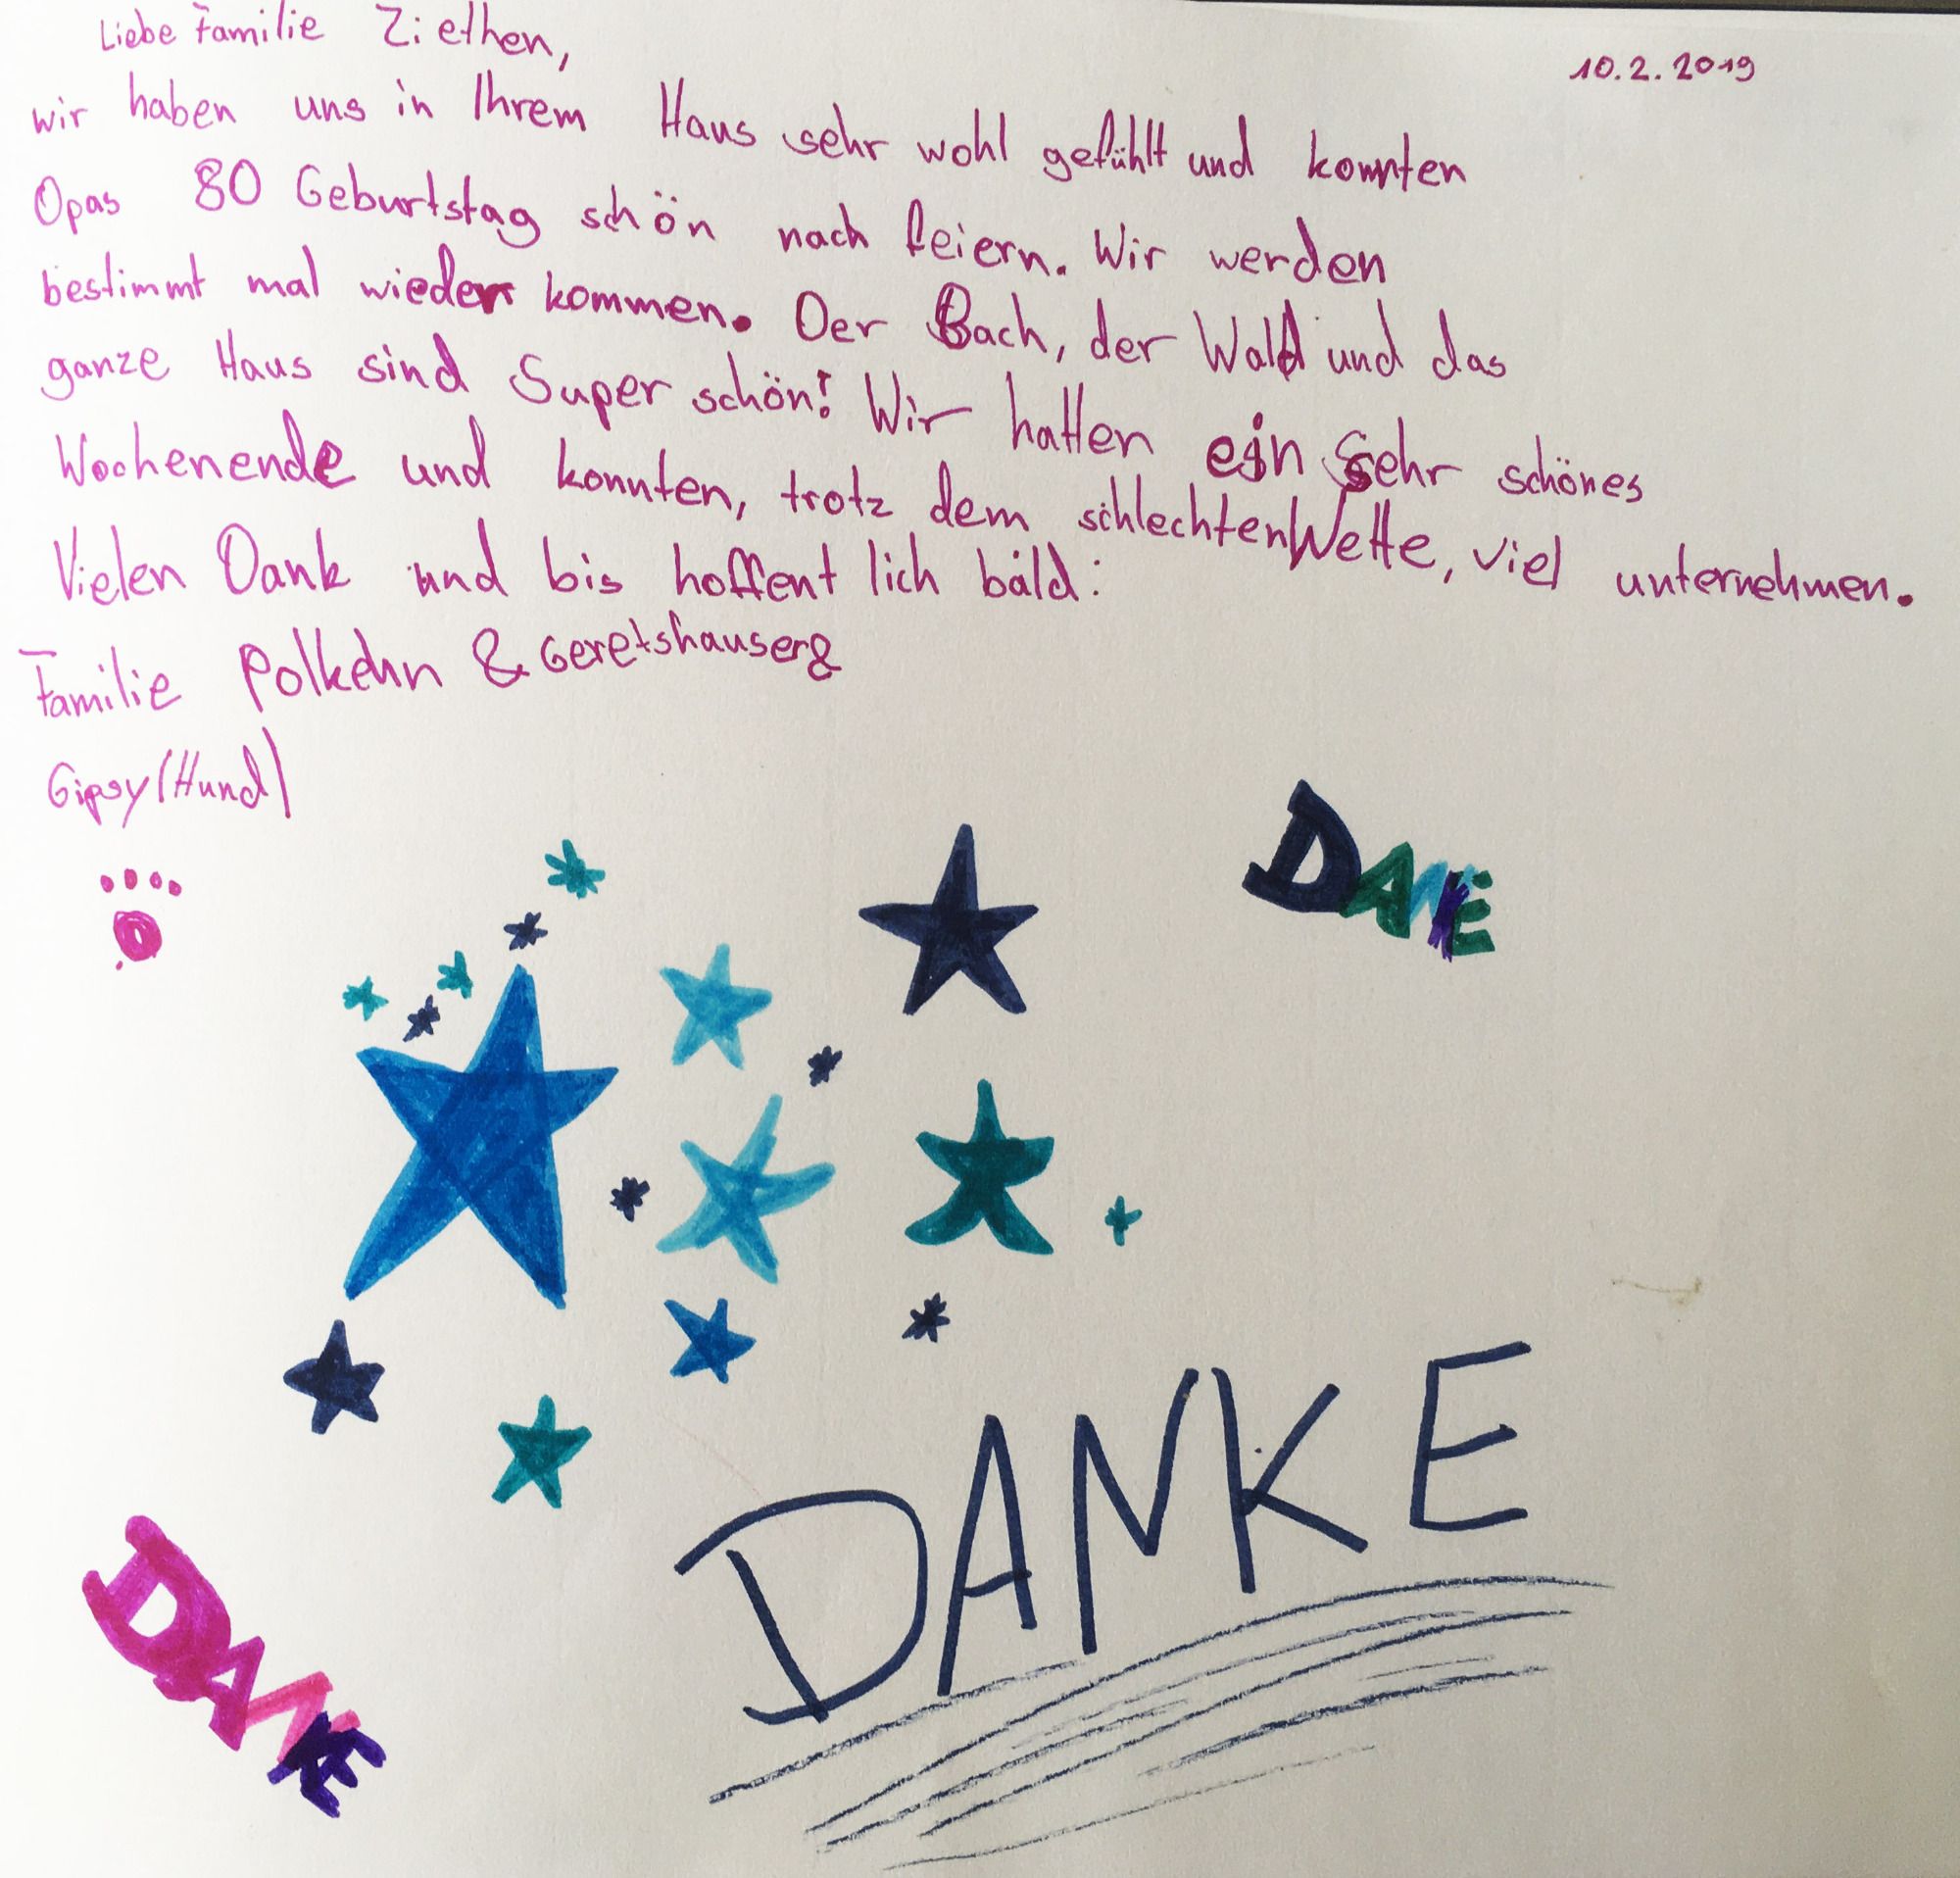 Liebe Familie Ziethen,
10.2.2019
wir haben uns in Ihrem Haus sehr wohl gefühlt und konnten
Opas 80 Geburtstag schön nach feiern. Wir werden
bestimmt mal wieder kommen. Der Bach, der Wald und das
ganze Haus sind Super schön! Wir hatten ein sehr schönes
Wochenende und konnten, trotz dem schlechten Wette, viel unternehmen.
Vielen Dank und bis hoffent lich bald:
Familie Polkehn & Geretshauser &
Gipsy (Hund)
DANKE
DANKE
DANKE